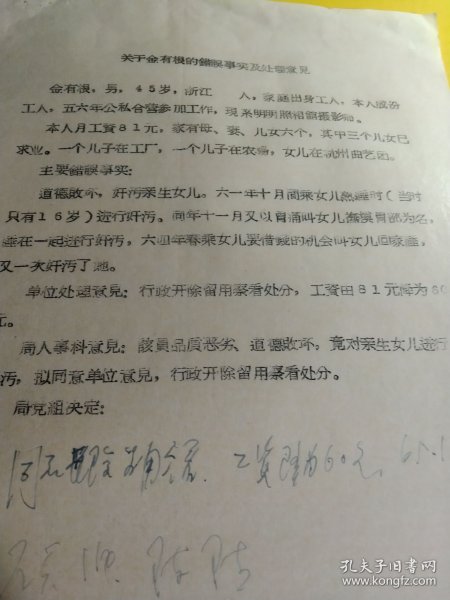 关于金有根的錯誤事实及处理意見
金有根，男，45岁，浙江 人，家庭出身工人，本人成份
工人，五六年公私合营参加工作，現系明明照相館摄影师。
本人月工資81元，家有母、妻、儿女六个，其中三个儿女已
求业。一个儿子在工厂，一个儿子在农場，女儿在杭州曲艺团。
主要錯誤事实：
道德敗坏，奸污亲生女儿。六一年十月間乘女儿熟睡时（当时
只有16岁）进行奸污。同年十一月又以胃痛叫女儿 胃部为名，
睡在一起进行奸污，六四年春乘女儿要借 的机会叫女儿回家 ，
又一次奸污了她。
单位处理意見：行政开除留用察看处分，工資由81元降为60
元。
局人事科意見：該員品质恶劣、道德敗坏，竟对亲生女儿进行
污，拟同意单位意見，行政开除留用察看处分。
局党組决定：
同意 工资降为60元。65.1
孔夫子旧书网
www.kongfz.com